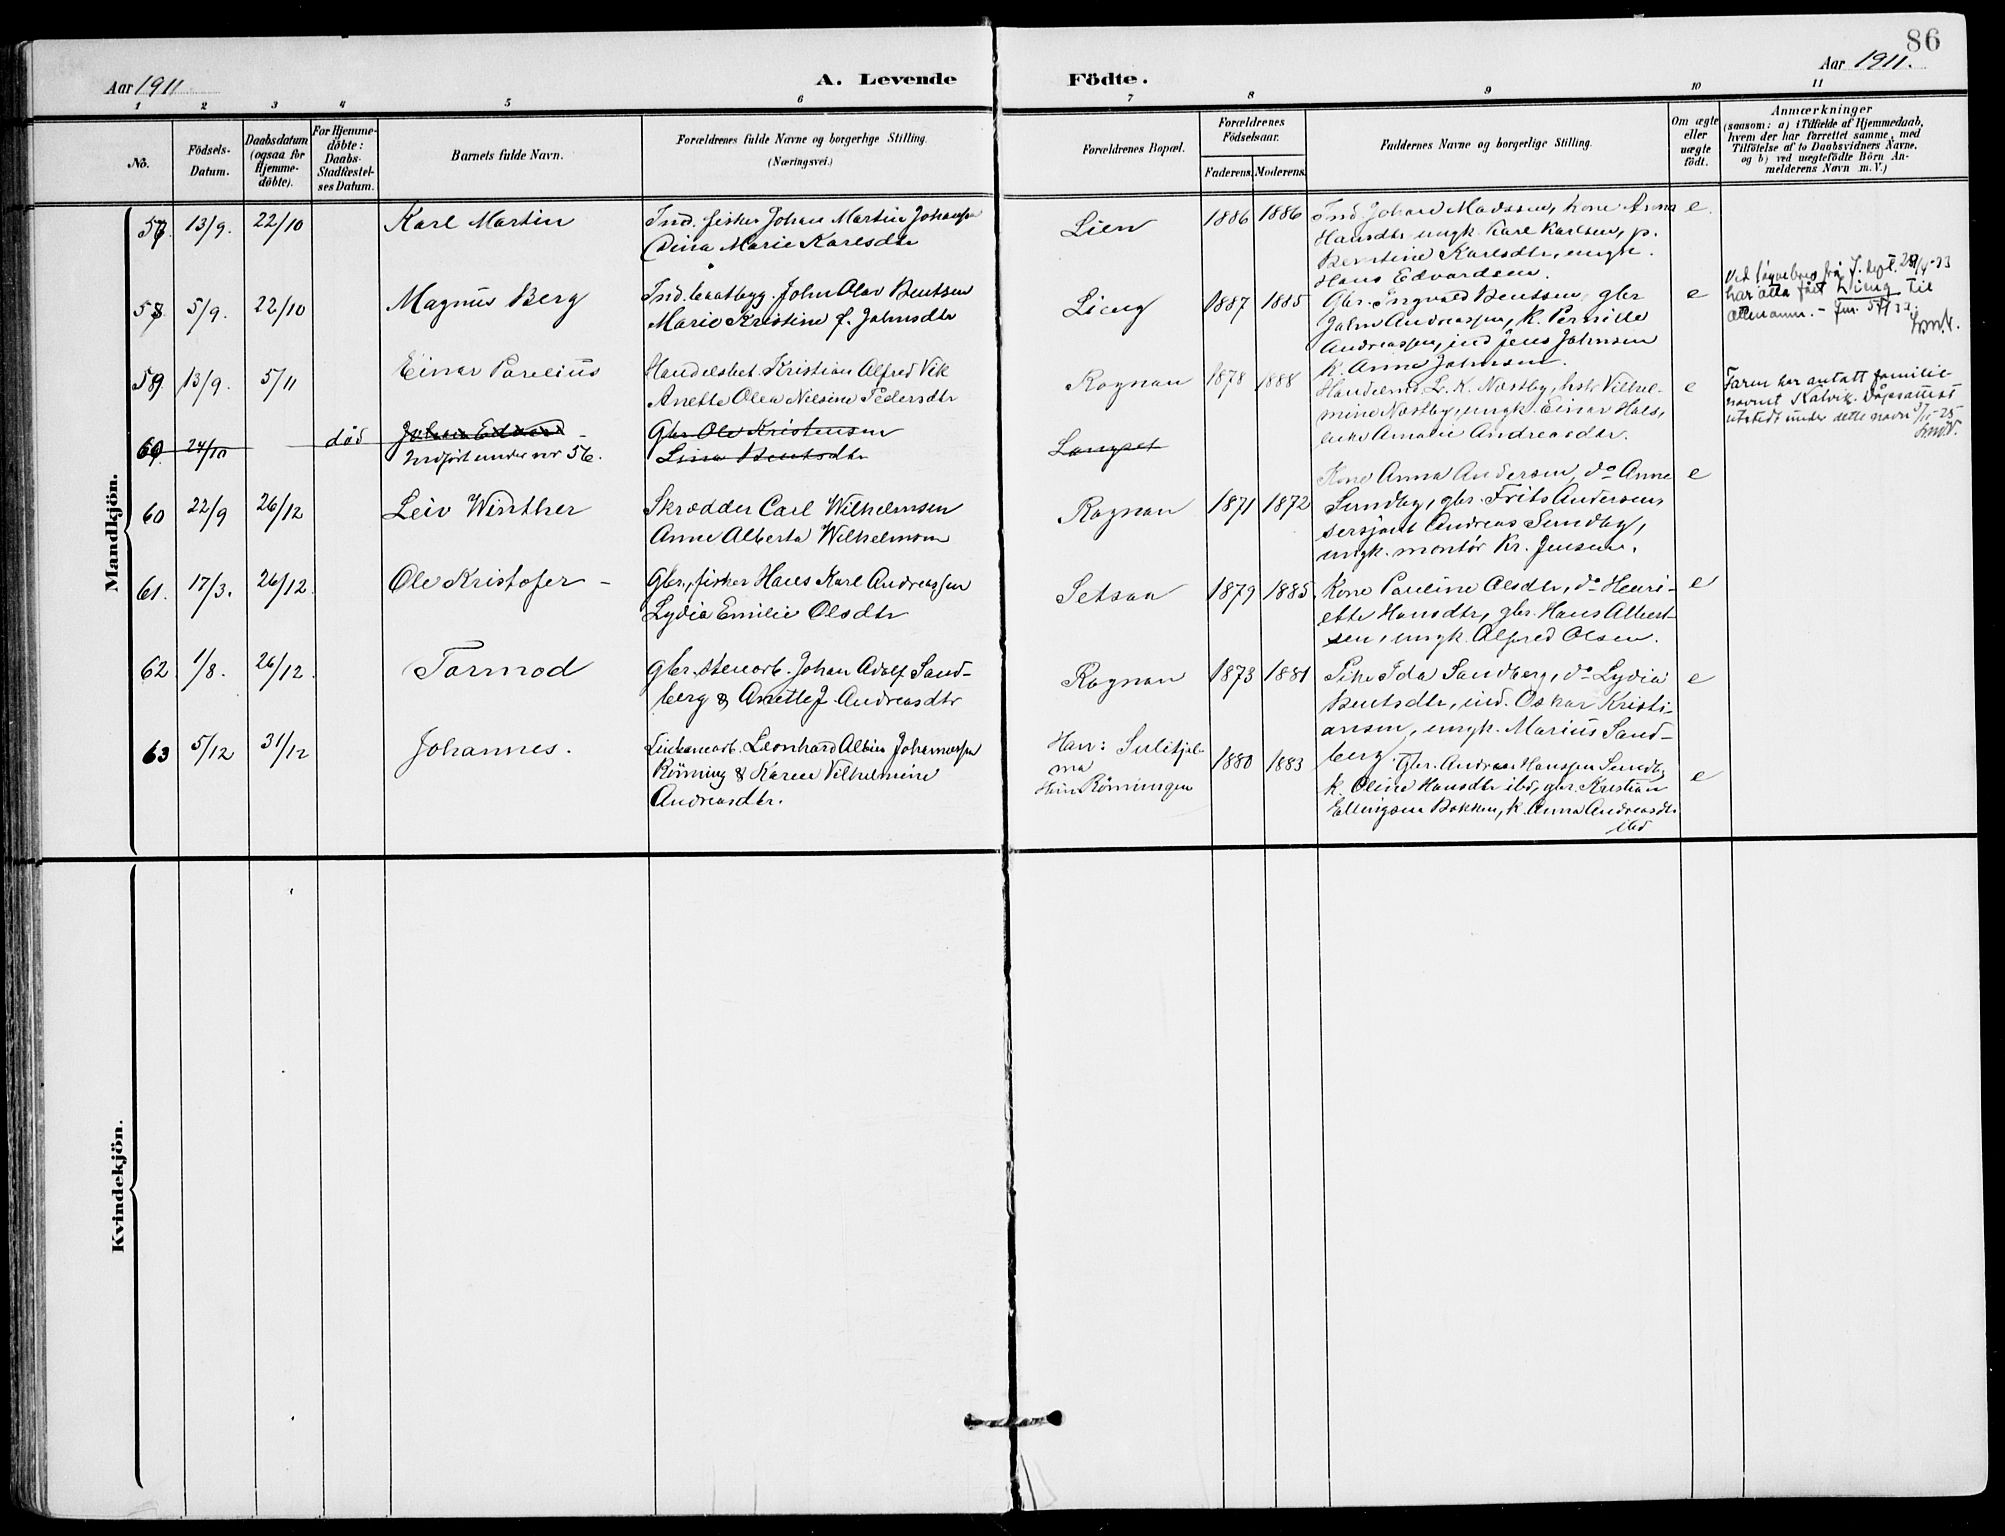 86
Aar 1911
A. Levende Födte.
Aar 1911.
1 2 3 4 5 6 7 8 9 10 11
Nō.
Födsels-
Datum.
Daabsdatum
(ogsaa for
Hjemme-
döbte).
For Hjemme-
döbte:
Daabs-
Stadfæstel-
ses Datum.
Barnets fulde Navn.
Forældrenes fulde Navne og borgerlige Stilling.
(Næringsvei.)
Forældrenes Bopæl.
Forældrenes
Födselsaar.
Faderens. Moderens.
Faddernes Navne og borgerlige Stilling.
Om ægte
eller
uægte
födt.
Anmærkninger
(saasom: a) i Tilfælde af Hjemmedaab,
hvem der har forrettet samme, med
Tilföielse af to Daabsvidners Navne,
og b) ved uægtefödte Börn An-
melderens Navn m.V.)
Mandkjön.
57. 13/9. 22/10
Karl Martin
Ind. fisker Johan Martin Johanssen
Dina Marie Karlsdtr
Lien
1886 1886
Ind. Johan Madssen, kone Anna
Hansdtr, ungk. Karl Karlsen, p.
Berntine Karlsdtr, ungk.
Hans Edvardsen.
e.
58. 5/9. 22/10
Magnus Berg
Ind. baatbyg. John Olav Bentsen
Marie Kristine f. Jahnsdtr
Lieng
1887 1885
Gbr. Ingvald Bentsen, gbr
Jahn Andreassen, k. Pernille
Andreassen, ind Jens Jahnsen
k. Anne Jahnsen.
e
har atta fått Lieng til
59. 13/9. 5/11
Einar Parelius
Handelsbet. Kristian Alfred Vik
Anette Olea Nilsine Pedersdtr
Rognan
1878 1888
Handelsmd L. K. Næstby, hstr Vilhel-
mine Næstby, ungk. Einar Hals,
pike Amalie Andreasdtr.
e
Faren har antatt familie-
navnet Kalvik. Dåpsattest
utstedt under dette navn
60. 24/10 død
Johan Edvard
Indført under nr 56.
Gbr. Ole Kristensen
Lina Bentsdtr
Langset
60 22/9 26/12
Leiv Winther
Skrædder Carl Wilhelmsen
Anne Alberta Wilhelmsen
Rognan
1871 1872
Kone Anna Andersen, do Anne
Sundby, gbr. Frits Andersen,
sersjant Andreas Sundby,
ungk. montør Kr. Jensen.
e
61. 17/3. 26/12.
Ole Kristofer –
Gbr., fisker Hans Karl Andreassen
Lydia Emilie Olsdtr
Setsaa
1879 1885
Kone Pauline Olsdtr, do Henri-
ette Hansdtr, gbr. Hans Albert-
sen, ungk. Alfred Olsen.
e
62 1/8. 26/12.
Tormod
Gbr. stenarb. Johan Adolf Sand-
berg & Anette J. Andreasdtr
Rognan
1873 1881
Pike Ida Sandberg, do Lydia
Bentsdtr, ind. Oskar Kristi-
ansen, ungk. Marius Sand-
berg.
e
63 5/12 31/12
Johannes.
Linbanearb. Leonhard Albin Johannessen
Rönning & Karen Vilhelmine
Andreasdtr.
Han: Sulitjel-
ma
Hun Rönningen
1880 1883
Gbr. Andreas Hanssen Sundby
k. Oline Hansdtr ibd, gbr. Kristian
Ellingsen Bakken, k. Anna Andreasdtr
ibd
e
Kvindekjön.